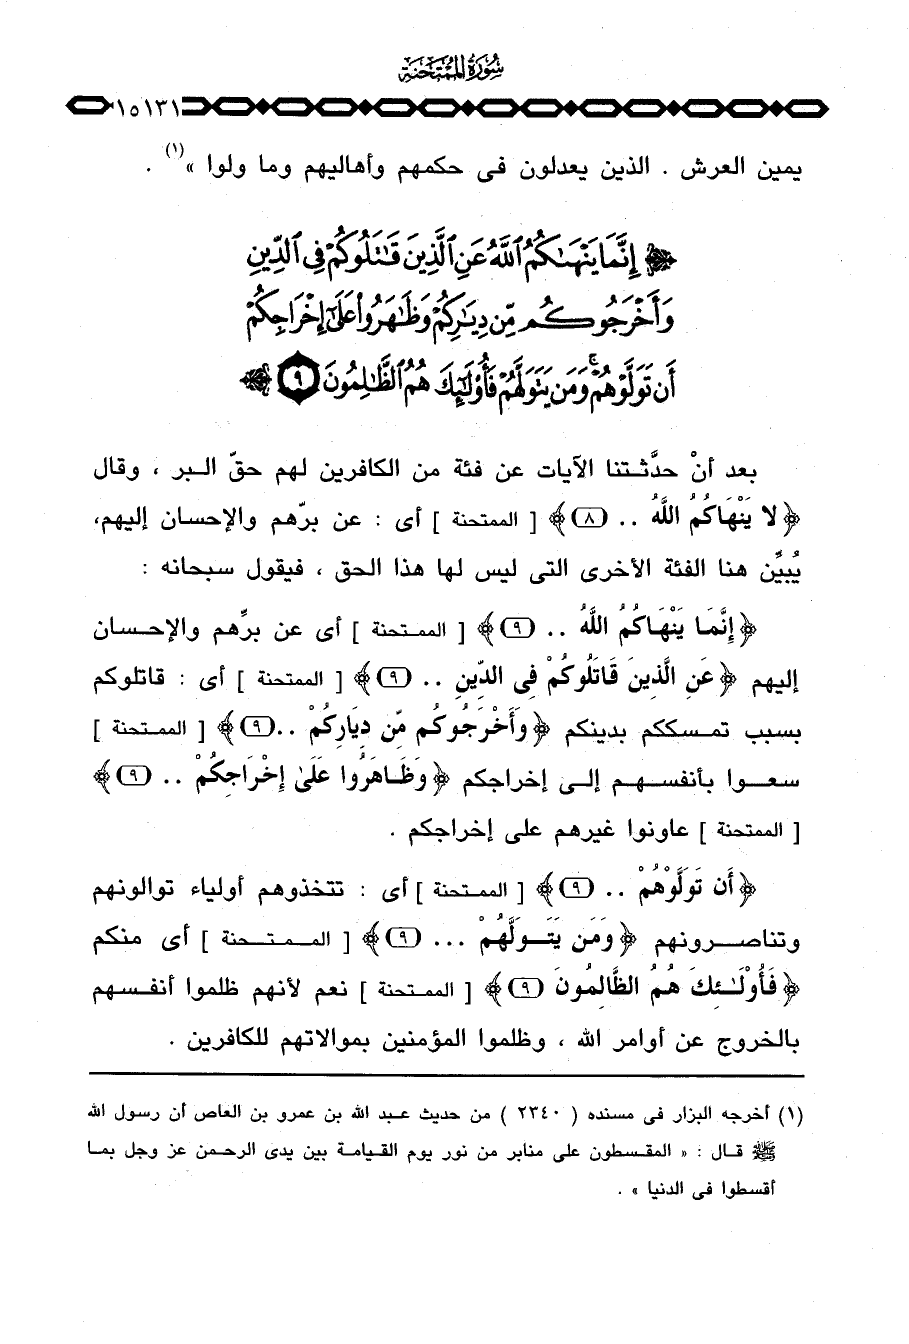 سُورَةُ المُمْتَحنَة
١٥١٣١
يمين العرش . الذين يعدلون فى حكمهم وأهاليهم وما ولوا »(١) .
﴿ إِنَّمَا يَنْهَىٰكُمُ ٱللَّهُ عَنِ ٱلَّذِينَ قَـٰتَلُوكُمْ فِى ٱلدِّينِ
وَأَخْرَجُوكُم مِّن دِيَـٰرِكُمْ وَظَـٰهَرُوا۟ عَلَىٰٓ إِخْرَاجِكُمْ
أَن تَوَلَّوْهُمْ ۚ وَمَن يَتَوَلَّهُمْ فَأُو۟لَـٰٓئِكَ هُمُ ٱلظَّـٰلِمُونَ ٩ ﴾
بعد أنْ حدَّثـتنا الآيات عن فئة من الكافرين لهم حقّ البر ، وقال
﴿ لا يَنْهَاكُمُ اللَّهُ .. (٨) ﴾ [ الممتحنة ] أى : عن برّهم والإحسان إليهم،
يُبيِّن هنا الفئة الأخرى التى ليس لها هذا الحق ، فيقول سبحانه :
﴿ إِنَّمَا يَنْهَاكُمُ اللَّهُ .. (٩) ﴾ [ الممتحنة ] أى عن برِّهم والإحسان
إليهم ﴿ عَنِ الَّذِينَ قَاتَلُوكُمْ فِى الدِّينِ .. (٩) ﴾ [ الممتحنة ] أى : قاتلوكم
بسبب تمسككم بدينكم ﴿ وَأَخْرَجُوكُم مِّن دِيَارِكُمْ .. (٩) ﴾ [ الممتحنة ]
سعوا بأنفسهم إلى إخراجكم ﴿ وَظَاهَرُوا عَلَىٰ إِخْرَاجِكُمْ .. (٩) ﴾
[ الممتحنة ] عاونوا غيرهم على إخراجكم .
﴿ أَن تَوَلَّوْهُمْ .. (٩) ﴾ [ الممتحنة ] أى : تتخذوهم أولياء توالونهم
وتناصرونهم ﴿ وَمَن يَتَوَلَّهُمْ ... (٩) ﴾ [ الممتحنة ] أى منكم
﴿ فَأُوْلَـٰئِكَ هُمُ الظَّالِمُونَ (٩) ﴾ [ الممتحنة ] نعم لأنهم ظلموا أنفسهم
بالخروج عن أوامر الله ، وظلموا المؤمنين بموالاتهم للكافرين .
(١) أخرجه البزار فى مسنده ( ٢٣٤٠ ) من حديث عبد الله بن عمرو بن العاص أن رسول الله
ﷺ قال : « المقسطون على منابر من نور يوم القيامة بين يدى الرحمن عز وجل بما
أقسطوا فى الدنيا » .